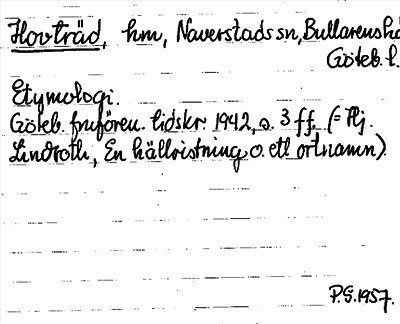 Hovträd, hm, Naverstads sn, Bullarens hd
Göteb. l.
Etymologi.
Göteb. fornfören. tidskr. 1942, s. 3 ff. (= Hj.
Lindroth, En hällristning o. ett ortnamn).
P.G. 1957.